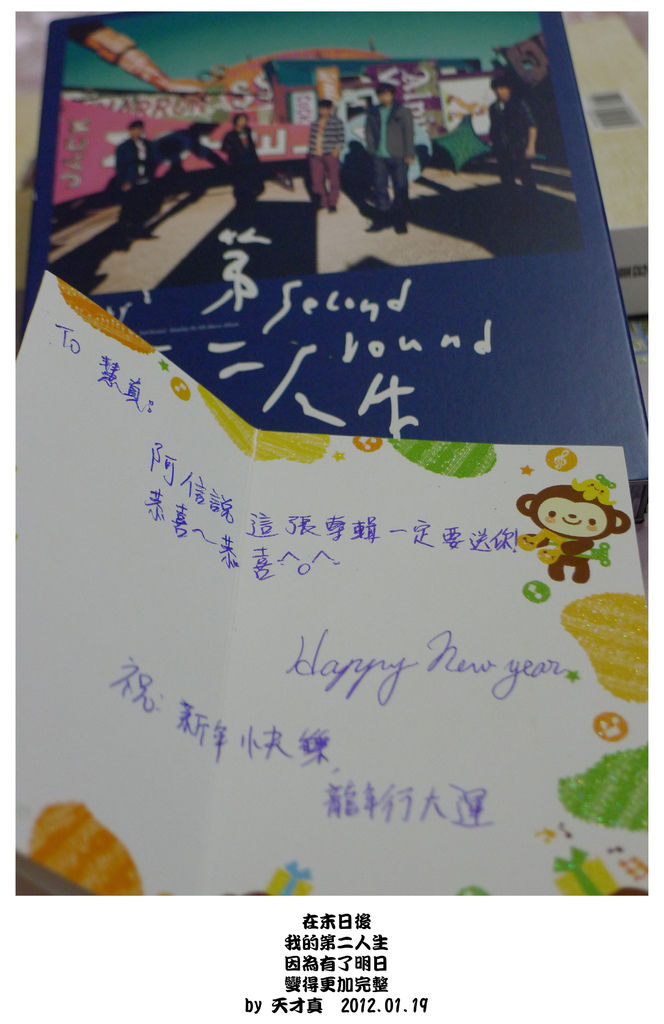 JACK
第二人生
Second
round
To 慧真:
阿信說 這張專輯一定要送你!
恭喜~恭喜^o^
Happy New year
祝: 新年快樂
龍年行大運
在末日後
我的第二人生
因為有了明日
變得更加完整
by 天才真 2012.01.19